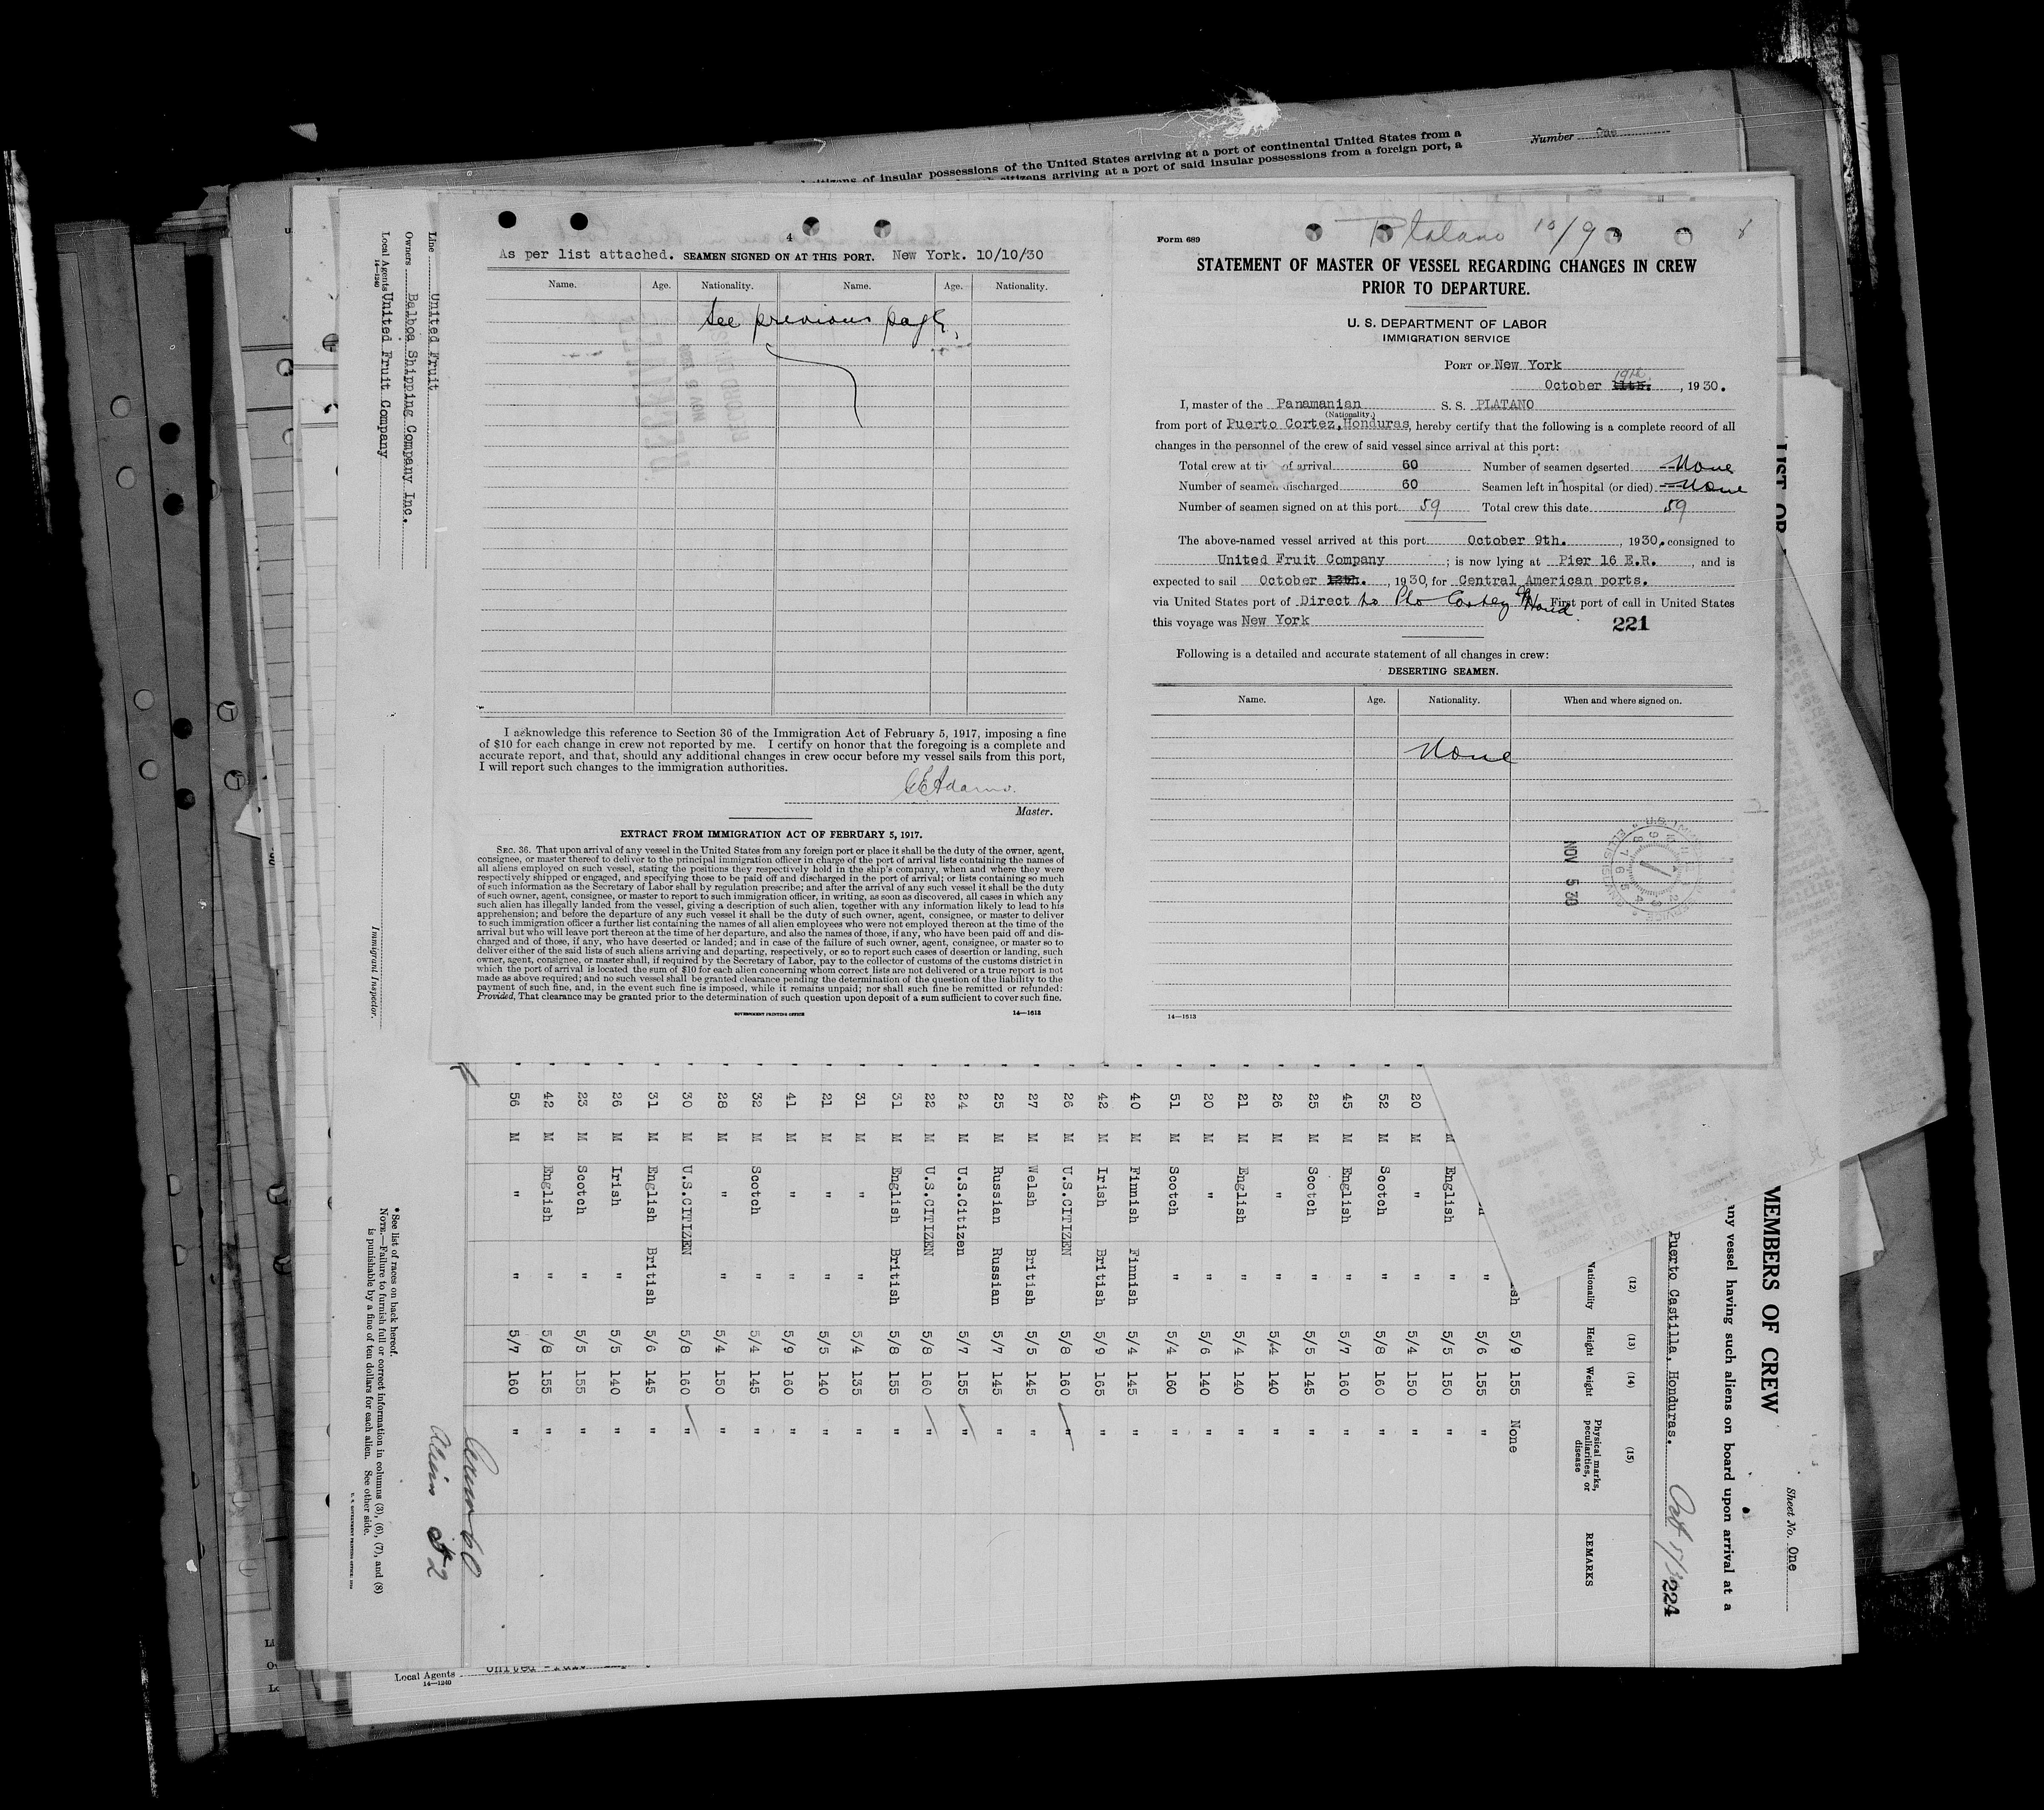 itizens of insular possessions of the United States arriving at a port of continental United States from a
citizens arriving at a port of said insular possessions from a foreign port, a
Number One
4
As per list attached. SEAMEN SIGNED ON AT THIS PORT. New York. 10/10/30
Name. Age. Nationality. Name. Age. Nationality.
See previous page,
I acknowledge this reference to Section 36 of the Immigration Act of February 5, 1917, imposing a fine
of $10 for each change in crew not reported by me. I certify on honor that the foregoing is a complete and
accurate report, and that, should any additional changes in crew occur before my vessel sails from this port,
I will report such changes to the immigration authorities.
G E Adams.
Master.
EXTRACT FROM IMMIGRATION ACT OF FEBRUARY 5, 1917.
SEC. 36. That upon arrival of any vessel in the United States from any foreign port or place it shall be the duty of the owner, agent,
consignee, or master thereof to deliver to the principal immigration officer in charge of the port of arrival lists containing the names of
all aliens employed on such vessel, stating the positions they respectively hold in the ship's company, when and where they were
respectively shipped or engaged, and specifying those to be paid off and discharged in the port of arrival; or lists containing so much
of such information as the Secretary of Labor shall by regulation prescribe; and after the arrival of any such vessel it shall be the duty
of such owner, agent, consignee, or master to report to such immigration officer, in writing, as soon as discovered, all cases in which any
such alien has illegally landed from the vessel, giving a description of such alien, together with any information likely to lead to his
apprehension; and before the departure of any such vessel it shall be the duty of such owner, agent, consignee, or master to deliver
to such immigration officer a further list containing the names of all alien employees who were not employed thereon at the time of the
arrival but who will leave port thereon at the time of her departure, and also the names of those, if any, who have been paid off and dis-
charged and of those, if any, who have deserted or landed; and in case of the failure of such owner, agent, consignee, or master so to
deliver either of the said lists of such aliens arriving and departing, respectively, or so to report such cases of desertion or landing, such
owner, agent, consignee, or master shall, if required by the Secretary of Labor, pay to the collector of customs of the customs district in
which the port of arrival is located the sum of $10 for each alien concerning whom correct lists are not delivered or a true report is not
made as above required; and no such vessel shall be granted clearance pending the determination of the question of the liability to the
payment of such fine, and, in the event such fine is imposed, while it remains unpaid; nor shall such fine be remitted or refunded:
Provided, That clearance may be granted prior to the determination of such question upon deposit of a sum sufficient to cover such fine.
GOVERNMENT PRINTING OFFICE 14—1513
Platano 10/9
Form 689
STATEMENT OF MASTER OF VESSEL REGARDING CHANGES IN CREW
PRIOR TO DEPARTURE.
U. S. DEPARTMENT OF LABOR
IMMIGRATION SERVICE
PORT OF New York
October 11th. , 1930.
I, master of the Panamanian S. S. PLATANO
(Nationality.)
from port of Puerto Cortez, Honduras, hereby certify that the following is a complete record of all
changes in the personnel of the crew of said vessel since arrival at this port:
Total crew at ti of arrival 60 Number of seamen deserted None
Number of seamen discharged 60 Seamen left in hospital (or died) None
Number of seamen signed on at this port 59 Total crew this date 59
The above-named vessel arrived at this port October 9th. , 1930, consigned to
United Fruit Company ; is now lying at Pier 16 E.R. , and is
expected to sail October 12th. , 1930, for Central American ports.
via United States port of Direct to Pto Cortez Hond First port of call in United States
this voyage was New York
221
Following is a detailed and accurate statement of all changes in crew:
DESERTING SEAMEN.
Name. Age. Nationality. When and where signed on.
None
NOV 5 30
14—1513
Line United Fruit
Owners Balboa Shipping Company Inc.
Local Agents United Fruit Company
14—1240
Immigrant Inspector.
LIST OR
MEMBERS OF CREW
Sheet No. One
any vessel having such aliens on board upon arrival at a
Puerto Castilla, Honduras.
224
(12) (13) (14) (15)
Nationality Height Weight Physical marks, peculiarities, or disease REMARKS
sh 5/9 155 None
" 5/6 155 "
M English " 5/5 150 "
20 M " " 5/4 150 "
52 M Scotch " 5/8 160 "
45 M English " 5/7 160 "
25 M Scotch " 5/5 145 "
26 M " " 5/4 140 "
21 M English " 5/4 140 "
20 M " " 5/6 140 "
51 M Scotch " 5/4 160 "
40 M Finnish Finnish 5/4 145 "
42 M Irish British 5/9 165 "
26 M U.S.CITIZEN 5/8 160 "
27 M Welsh British 5/5 145 "
25 M Russian Russian 5/7 145 "
24 M U.S.Citizen 5/7 155 "
22 M U.S.CITIZEN 5/8 160 "
31 M English British 5/8 155 "
31 M " " 5/4 135 "
21 M " " 5/5 140 "
41 M " " 5/9 160 "
32 M Scotch " 5/4 145 "
28 M " " 5/4 150 "
30 M U.S.CITIZEN 5/8 160 "
31 M English British 5/6 145 "
26 M Irish " 5/5 140 "
23 M Scotch " 5/5 155 "
42 M English " 5/8 155 "
56 M " " 5/7 160 "
* See list of races on back hereof.
NOTE.—Failure to furnish full or correct information in columns (3), (6), (7), and (8)
is punishable by a fine of ten dollars for each alien. See other side.
Local Agents
14—1240